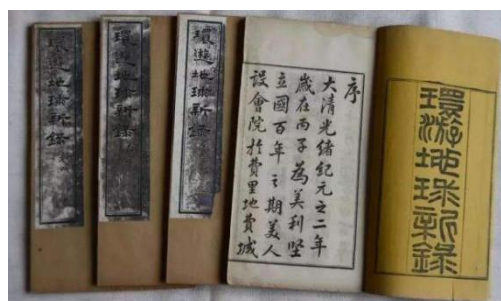 環遊地球新錄
環遊地球新錄
環遊地球新錄
序
大清光緒紀元之二年
歲在丙子為美利堅
立國百年之期美人
設會院於費里地費城
環游地球新錄